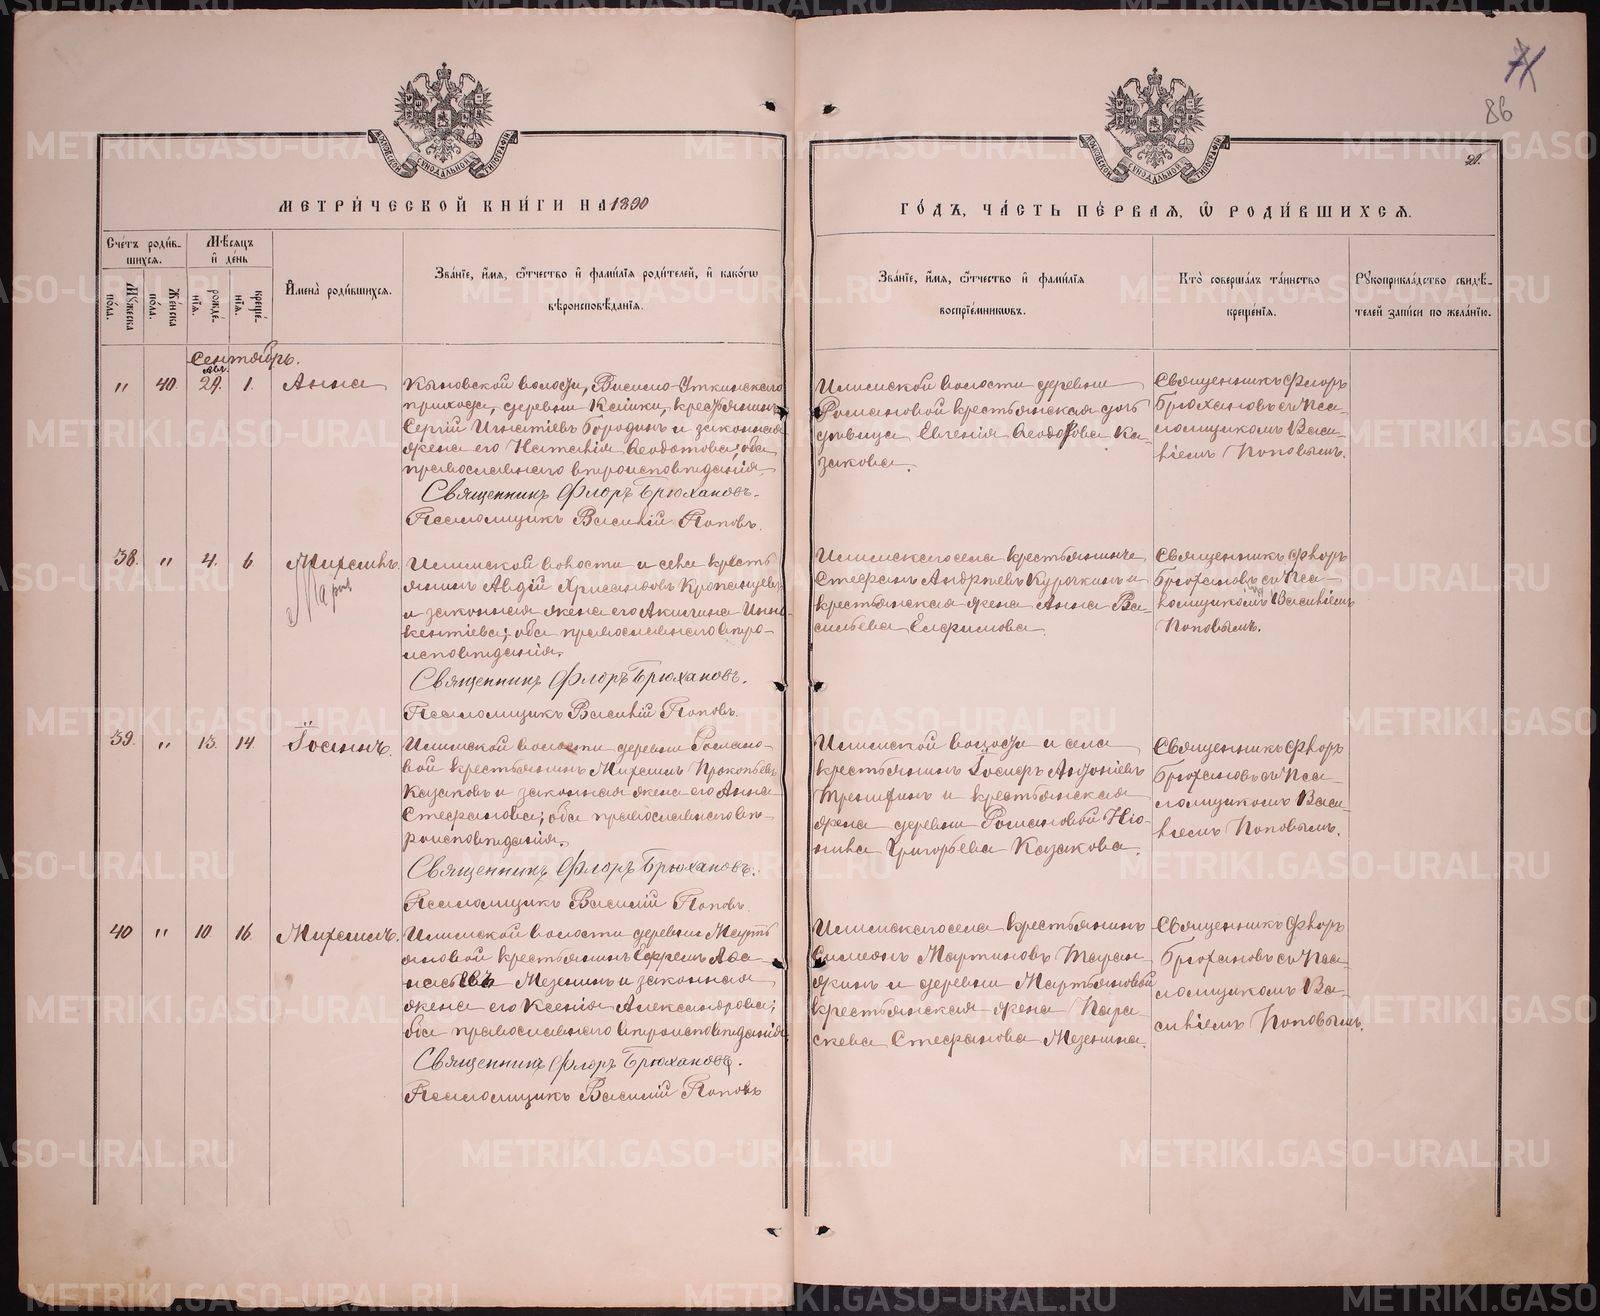 METRIKI.GASO-URAL.RU
71
86
21.
МЕТРИ́ЧЕСКОЙ КНИ́ГИ НА 1890
ГО́ДЪ, ЧА́СТЬ ПЕ́РВАЯ, Ѡ҆ РОДИ́ВШИХСЯ.
МОСКОВСКОЙ СѴНОДАЛЬНОЙ ТИПОГРАФІИ
МОСКОВСКОЙ СѴНОДАЛЬНОЙ ТИПОГРАФІИ
Сче́тъ роди́в-
шихся.
Мѣ́сяцъ
и҆ де́нь
Мꙋ́жеска по́ла.
Же́нска по́ла.
рожде́-нїя.
креще́-нїя.
И҆мена̀ роди́вшихся.
Зва́нїе, и҆́мя, ѻ҆́тчество и҆ фами́лїя роди́телей, и҆ како́гѡ
вѣроисповѣ́данїя.
Зва́нїе, и҆́мя, ѻ҆́тчество и҆ фами́лїя
воспрїе́мникѡвъ.
Кто̀ соверша́лъ та́инство
креще́нїя.
Рꙋкоприкла́дство свидѣ́-
телей за́писи по жела́нїю.
Сентябрь.
авг.
" 40. 29. 1. Анна
Кыновской волости, Висимо-Уткинскаго
прихода, деревни Кашки, крестьянинъ
Сергій Игнатіевъ Бородинъ и законная
жена его Наталія Ѳеодотова; оба
православнаго вѣроисповѣданія.
Священникъ Флоръ Брюхановъ.
Псаломщикъ Василій Поповъ.
Илимской волости деревни
Романовой крестьянская дочь
дѣвица Евгенія Ѳеодорова Ка-
закова.
Священникъ Флоръ
Брюхановъ съ Пса-
ломщикомъ Васи-
ліемъ Поповымъ.
38. " 4. 6 Михаилъ.
Илимской волости и села кресть
янинъ Авдій Хрисанфовъ Кропанцевъ
и законная жена его Акилина Инно-
кентіева; оба православнаго вѣро-
исповѣданія.
Священникъ Флоръ Брюхановъ.
Псаломщикъ Василій Поповъ.
Илимскаго села крестьянинъ
Стефанъ Андреевъ Курочкинъ и
крестьянская жена Анна Ва-
сильева Елфимова.
Священникъ Флоръ
Брюхановъ съ Пса-
ломщикомъ Василіемъ
Поповымъ.
39. " 13. 14. Іоаннъ.
Илимской волости деревни Романо-
вой крестьянинъ Михаилъ Прокопьевъ
Казаковъ и законная жена его Анна
Стефанова; оба православнаго вѣ-
роисповѣданія.
Священникъ Флоръ Брюхановъ.
Псаломщикъ Василій Поповъ.
Илимской волости и села
крестьянинъ Іосифъ Антоніевъ
Тренихинъ и крестьянская
жена деревни Романовой
Григорьева Казакова.
Священникъ Флоръ
Брюхановъ съ Пса-
ломщикомъ Васи-
ліемъ Поповымъ.
40 " 10. 16. Михаилъ.
Илимской волости деревни Марть
яновой крестьянинъ Ефремъ Аѳа-
насьевъ Мезенинъ и законная
жена его Ксенія Александрова;
оба православнаго вѣроисповѣданія
Священникъ Флоръ Брюхановъ.
Псаломщикъ Василій Поповъ
Илимскаго села крестьянинъ
Симеонъ Мартиновъ Таран
жинъ и деревни Мартьяновой
крестьянская жена Пара
скева Стефанова Мезенина.
Священникъ Флоръ
Брюхановъ съ Пса-
ломщикомъ Ва-
силіемъ Поповымъ.